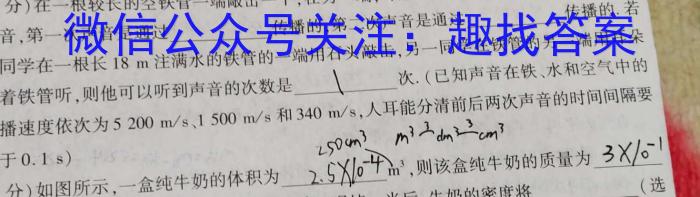 分)在一根较长的空铁管一端敲击一下,在另一
音,第一次声音是通过 传播的,第一次声音是通过 传播的.若
微信公众号关注：趣找答案
同学在一根长 18 m 注满水的铁管的一端用石头敲击,另一同学在铁管的另一端用耳朵
着铁管听,则他可以听到声音的次数是 1 次.(已知声音在铁、水和空气中的
播速度依次为 5 200 m/s、1 500 m/s 和 340 m/s,人耳能分清前后两次声音的时间间隔要
于 0.1 s)
250cm³ m³ 3 dm³ 3 cm³
分)如图所示,一盒纯牛奶的体积为 2.5×10⁻⁴ m³,则该盒纯牛奶的质量为 3×10⁻¹
后,牛奶的密度将 (选